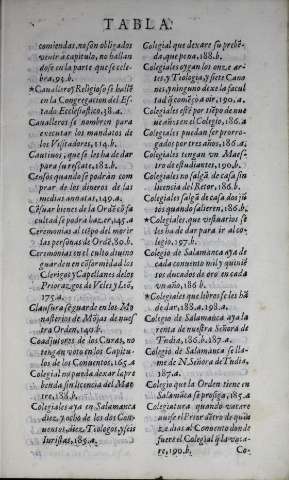 TABLA.
comiendas, no son obligados
venir a capitulo, no hallan
dose en la parte que se cele
bra. 93. b.
*Cauallero y Religioso se hallē
en la Congregacion del Es-
tado Ecclesiastico, 38. a.
Caualleros se nombren para
executar los mandatos de
los Visitadores, 114. b.
Cautiuos, que se les ha de dar
para su rescate, 182. b.
Cēsos quando se podrán com
prar de los dineros de las
medias annatas, 149. a.
Cēsuar bienes de la Ordē cō fa
cultad se podrá hazer, 145. a
Ceremonias al tiēpo del morir
las personas de Ordē, 80. b.
Ceremonias en el culto diuino
guarden en cōformidad los
Clerigos y Capellanes de los
Priorazgos de Vcles y Leō,
175. a.
Clausura se guarde en los Mo
nasterios de Mōjas de nues
tra Orden, 140. b.
Coadjutores de los Curas, no
tengan voto en los Capitu-
los de los Conuentos, 165. a.
Colegial no pueda dexar la pre
benda sin licencia del Maes
tre, 188. b.
Colegiales aya en Salamanca
diez, y ocho de los dos Con-
uentos, diez, Teologos, y seis
Iuristas, 185. a.
Colegial que dexare su prebē-
da, que pena, 188. b.
Colegiales oygan los onze, ar
tes, y Teologia, y siete Cano
nes, y ninguno dexe la facul
tad q̃ començó a oir, 190. a.
Colegiales esté por tiēpo de nue
ue años en el Colegio, 186. a
Colegiales puedan ser prorro-
gados por tres años, 186. a.
Colegiales tengan vn Maes-
tro de estudiantes, 190. b.
Colegiales no salgā de casa sin
licencia del Retor, 186. b.
Colegiales salgā de casa dos jū
tos quando salieren, 186. b.
*Colegiales, que vestuarios se
les ha de dar para ir al co-
legio, 197. b.
Colegio de Salamanca aya de
cada conuento mil y quiniē
tos ducados de oro en cada
vn año, 186. b.
*Colegiales que libros se les hā
de dar, 188. a. 198. a.
Colegio de Salamanca aya la
renta de nuestra Señora de
Tudia, 186. b. 187. a.
Colegio de Salamanca se lla-
me de N. Señora de Tudia,
187. a.
Colegio que la Orden tiene en
Salamāca se prosiga, 185. a
Colegiatura quando vacare
auise el Prior dētro de quin
ze dias al Conuento donde
fuere el Colegial q̃ la vaca-
re, 190. b.
Co-